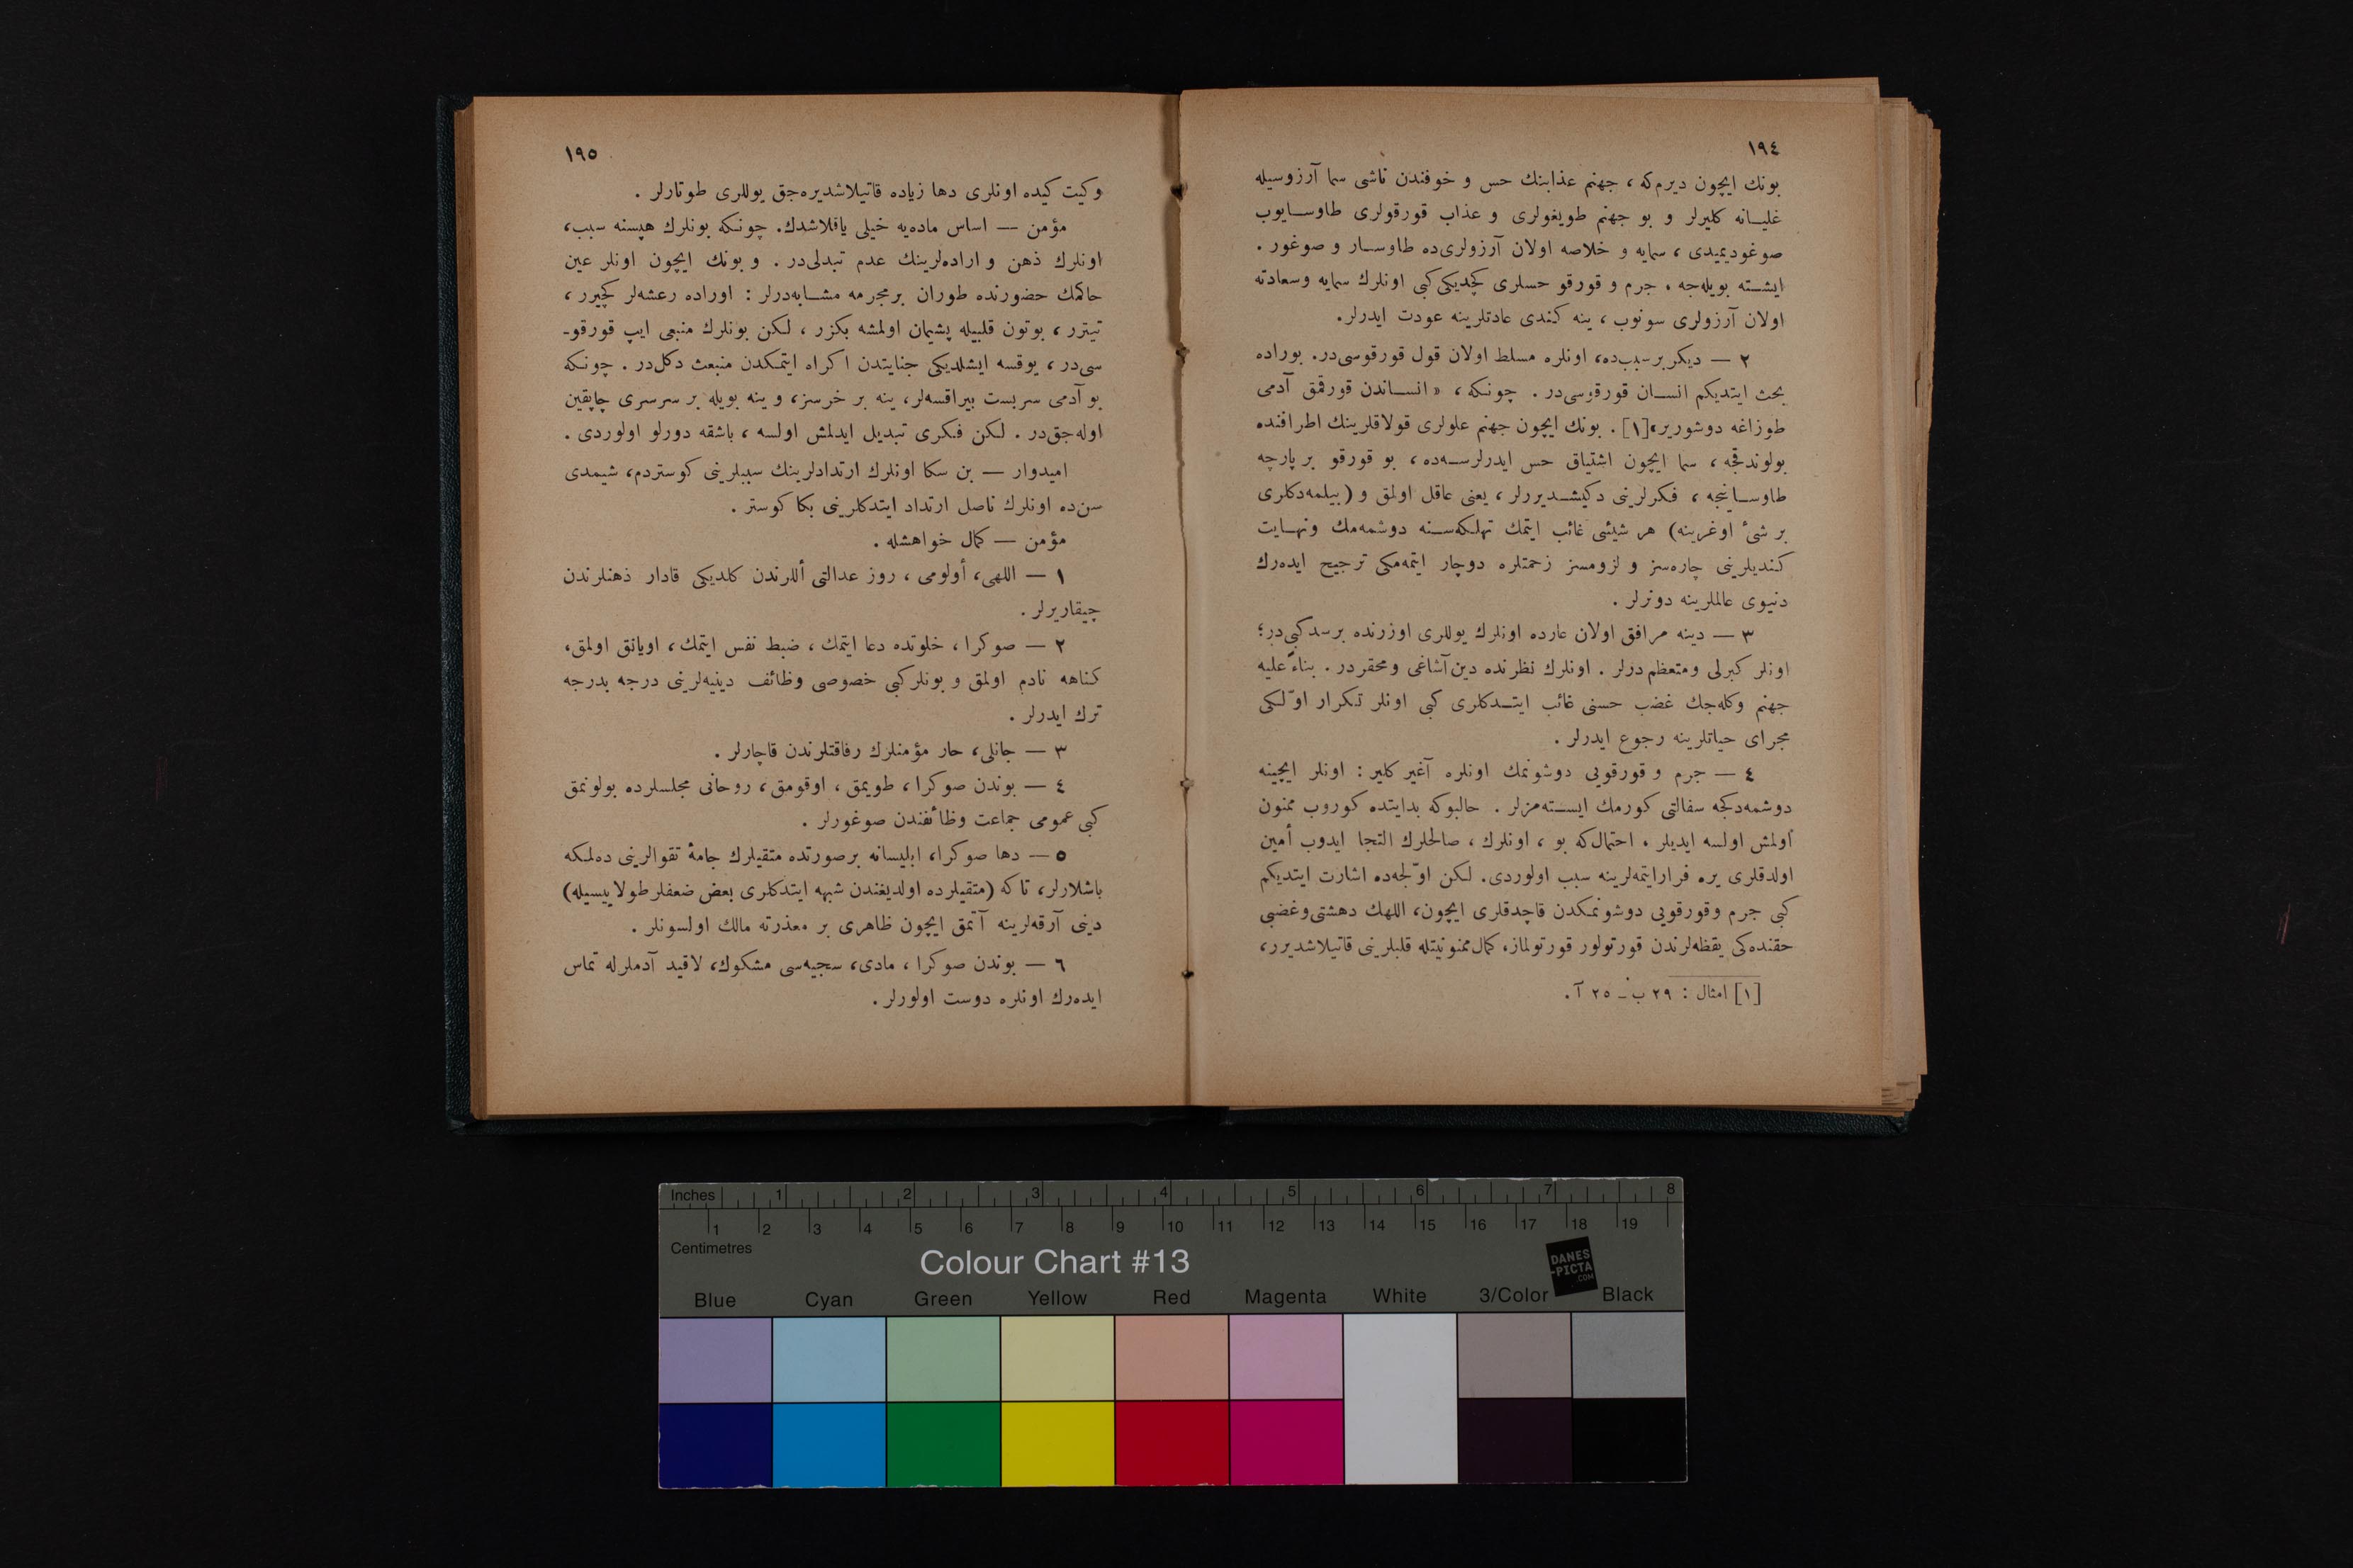 ١٩٤
بونك ايچون ديرم‌كه ، جهنم عذابنك حس و خوفندن ناشى سما آرزوسيله
غليـانه كليرلر و بو جهنم طويغولرى و عذاب قورقولرى طاوسـايوب
صوغوديميدى ، سمايه و خلاصه اولان آرزولرى‌ده طاوسـار و صوغور .
ايشـته بويله‌جه ، جرم و قورقو حسلرى كچديكى كبى اونلرك سمايه وسعادته
اولان آرزولرى سونوب ، ينه كندى عادتلرينه عودت ايدرلر.
٢ — ديكر برسبب‌ده، اونلره مسلط اولان قول قورقوسى‌در. بوراده
بحث ايتديكم انسـان قورقوسى‌در . چونكه ، « انسـاندن قورقمق آدمى
طوزاغه دوشورير»[١] . بونك ايچون جهنم علولرى قولاقلرينك اطرافنده
بولوندقجه ، سما ايچون اشتياق حس ايدرلرسـه‌ده ، بو قورقو بر پارچه
طاوسـاينجه ، فكرلرينى دكيشـديررلر ، يعنى عاقل اولمق و (بيلمه‌دكلرى
بر شئ اوغرينه) هر شيئى غائب ايتمك تهلكه‌سـنه دوشمه‌مك ونهـايت
كنديلرينى چاره‌سز و لزومسز زحمتلره دوچار ايتمه‌مكى ترجيح ايده‌رك
دنيوى عالملرينه دونرلر .
٣ — دينه مرافق اولان عارده اونلرك يوللرى اوزرنده برسد كبى‌در؛
اونلر كبرلى ومتعظم‌درلر . اونلرك نظرنده دين آشاغى ومحقردر . بناءً عليه
جهنم وكله‌جك غضب حسنى غائب ايتـدكلرى كبى اونلر تكرار اوّلكى
مجراى حياتلرينه رجوع ايدرلر .
٤ — جرم و قورقويى دوشونمك اونلره آغير كلير : اونلر ايچينه
دوشمه‌دكجه سفالتى كورمك ايسـته‌مزلر . حالبوكه بدايتده كوروب ممنون
اولمش اولسه ايديلر ، احتمال‌كه بو ، اونلرك ، صالحلرك التجا ايدوب أمين
اولدقلرى يره فرارايتمه‌لرينه سبب اولوردى. لكن اوّلجه‌ده اشارت ايتديكم
كبى جرم وقورقويى دوشونمكدن قاچدقلرى ايچون، اللهك دهشتى‌وغضبى
حقنده‌كى يقظه‌لرندن قورتولور قورتولماز، كمال‌ممنونيتله قلبلرينى قاتيلاشديرر،
[١] امثال : ٢٩ ب ـ ٢٥ آ .
١٩٥
وكيت كيده اونلرى دها زياده قاتيلاشديره‌جق يوللرى طوتارلر .
مؤمن — اساس ماده‌يه خيلى ياقلاشدك. چونكه بونلرك هپسنه سبب،
اونلرك ذهن و اراده‌لرينك عدم تبدلى‌در . و بونك ايچون اونلر عين
حاكمك حضورنده طوران برمجرمه مشـابه‌درلر : اوراده رعشه‌لر كچيرر ،
تيترر ، بوتون قلبيله پشيمان اولمشه بكزر ، لكن بونلرك منبعى ايپ قورقو-
سى‌در ، يوقسه ايشلديكى جنايتدن اكراه ايتمكدن منبعث دكل‌در . چونكه
بو آدمى سربست بيراقسه‌لر، ينه بر خرسز، و ينه بويله بر سرسرى چاپقين
اوله‌جق‌در . لكن فكرى تبديل ايدلمش اولسه ، باشقه دورلو اولوردى .
اميدوار — بن سكا اونلرك ارتدادلرينك سببلرينى كوستردم، شيمدى
سن‌ده اونلرك ناصل ارتداد ايتدكلرينى بكا كوستر .
مؤمن — كمال خواهشله .
١ — اللهى، أولومى ، روز عدالتى أللرندن كلديكى قادار ذهنلرندن
چيقاريرلر .
٢ — صوكرا ، خلوتده دعا ايتمك ، ضبط نفس ايتمك ، اويانق اولمق،
كناهه نادم اولمق و بونلركبى خصوصى وظائف دينيه‌لرينى درجه بدرجه
ترك ايدرلر .
٣ — جانلى، حار مؤمنلرك رفاقتلرندن قاچارلر .
٤ — بوندن صوكرا، طويمق ، اوقومق، روحانى مجلسلرده بولونمق
كبى عمومى جماعت وظائفندن صوغورلر .
٥ — دها صوكرا، ابليسانه برصورتده متقيلرك جامۀ تقوالرينى ده‌لمكه
باشلارلر، تاكه (متقيلرده اولديغندن شبهه ايتدكلرى بعض ضعفلر طولاييسيله)
دينى آرقه‌لرينه آتمق ايچون ظاهرى بر معذرته مالك اولسونلر .
٦ — بوندن صوكرا ، مادى، سجيه‌سى مشكوك، لاقيد آدملرله تماس
ايده‌رك اونلره دوست اولورلر.
Inches 1 2 3 4 5 6 7 8
1 2 3 4 5 6 7 8 9 10 11 12 13 14 15 16 17 18 19
Centimetres
Colour Chart #13
DANES
-PICTA
.COM
Blue Cyan Green Yellow Red Magenta White 3/Color Black